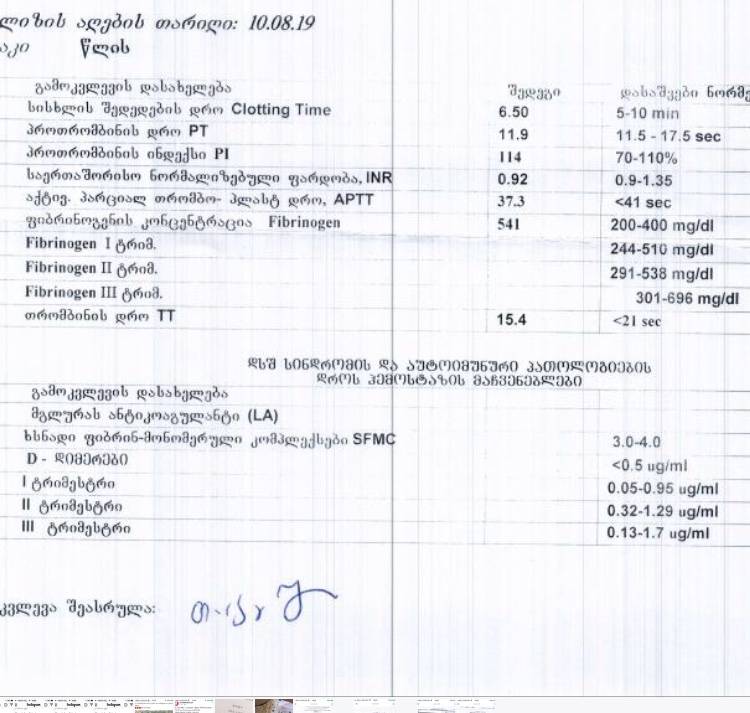 ლიზის აღების თარიღი: 10.08.19
აკი წლის
გამოკვლევის დასახელება შედეგი დასაშვები ნორმე
სისხლის შედედების დრო Clotting Time 6.50 5-10 min
პროთრომბინის დრო PT 11.9 11.5 - 17.5 sec
პროთრომბინის ინდექსი PI 114 70-110%
საერთაშორისო ნორმალიზებული ფარდობა, INR 0.92 0.9-1.35
აქტივ. პარციალ თრომბო- პლასტ დრო, APTT 37.3 <41 sec
ფიბრინოგენის კონცენტრაცია Fibrinogen 541 200-400 mg/dl
Fibrinogen I ტრიმ. 244-510 mg/dl
Fibrinogen II ტრიმ. 291-538 mg/dl
Fibrinogen III ტრიმ. 301-696 mg/dl
თრომბინის დრო TT 15.4 <21 sec
დსშ სინდრომის და აუტოიმუნური პათოლოგიების
დროს ჰემოსტაზის მაჩვენებლები
გამოკვლევის დასახელება
მგლურას ანტიკოაგულანტი (LA)
ხსნადი ფიბრინ-მონომერული კომპლექსები SFMC 3.0-4.0
D - დიმერები <0.5 ug/ml
I ტრიმესტრი 0.05-0.95 ug/ml
II ტრიმესტრი 0.32-1.29 ug/ml
III ტრიმესტრი 0.13-1.7 ug/ml
კვლევა შეასრულა: